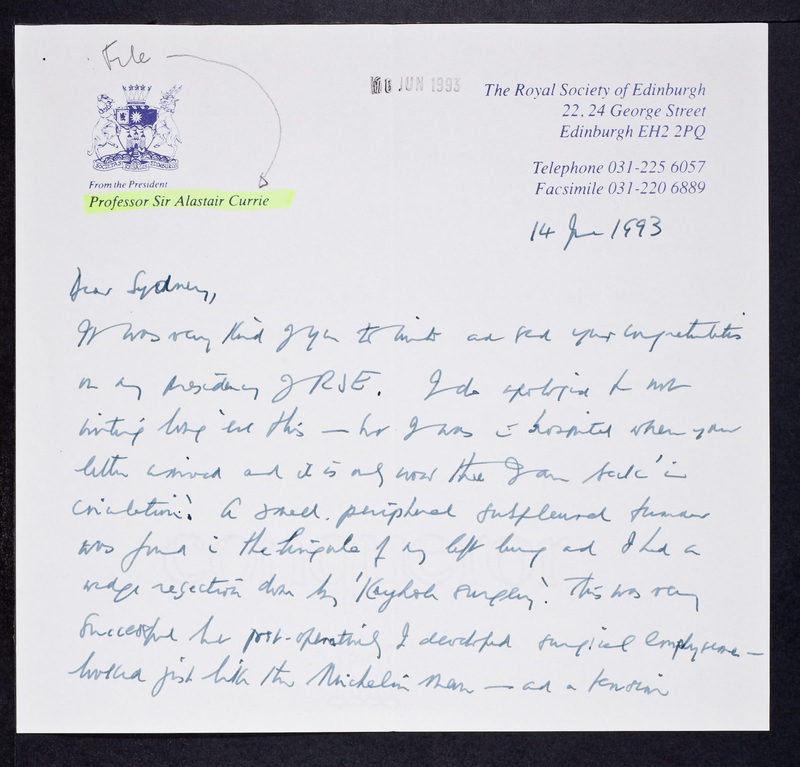 File
JUN 1993
The Royal Society of Edinburgh
22, 24 George Street
Edinburgh EH2 2PQ
Telephone 031-225 6057
Facsimile 031-220 6889
From the President
Professor Sir Alastair Currie
14 June 1993
Dear Sydney,
It was very kind of you to write and send your congratulations
on my presidency of RSE. I do apologise for not
writing long 'ere this — but I was in hospital when your
letter arrived and it is only now that I am back 'in
circulation'. A small, peripheral subpleural tumour
was found in the lingula of my left lung and I had a
wedge resection done by 'Keyhole surgery'. This was very
successful but post-operatively I developed surgical emphysema —
looked just like the Michelin man — and a tension